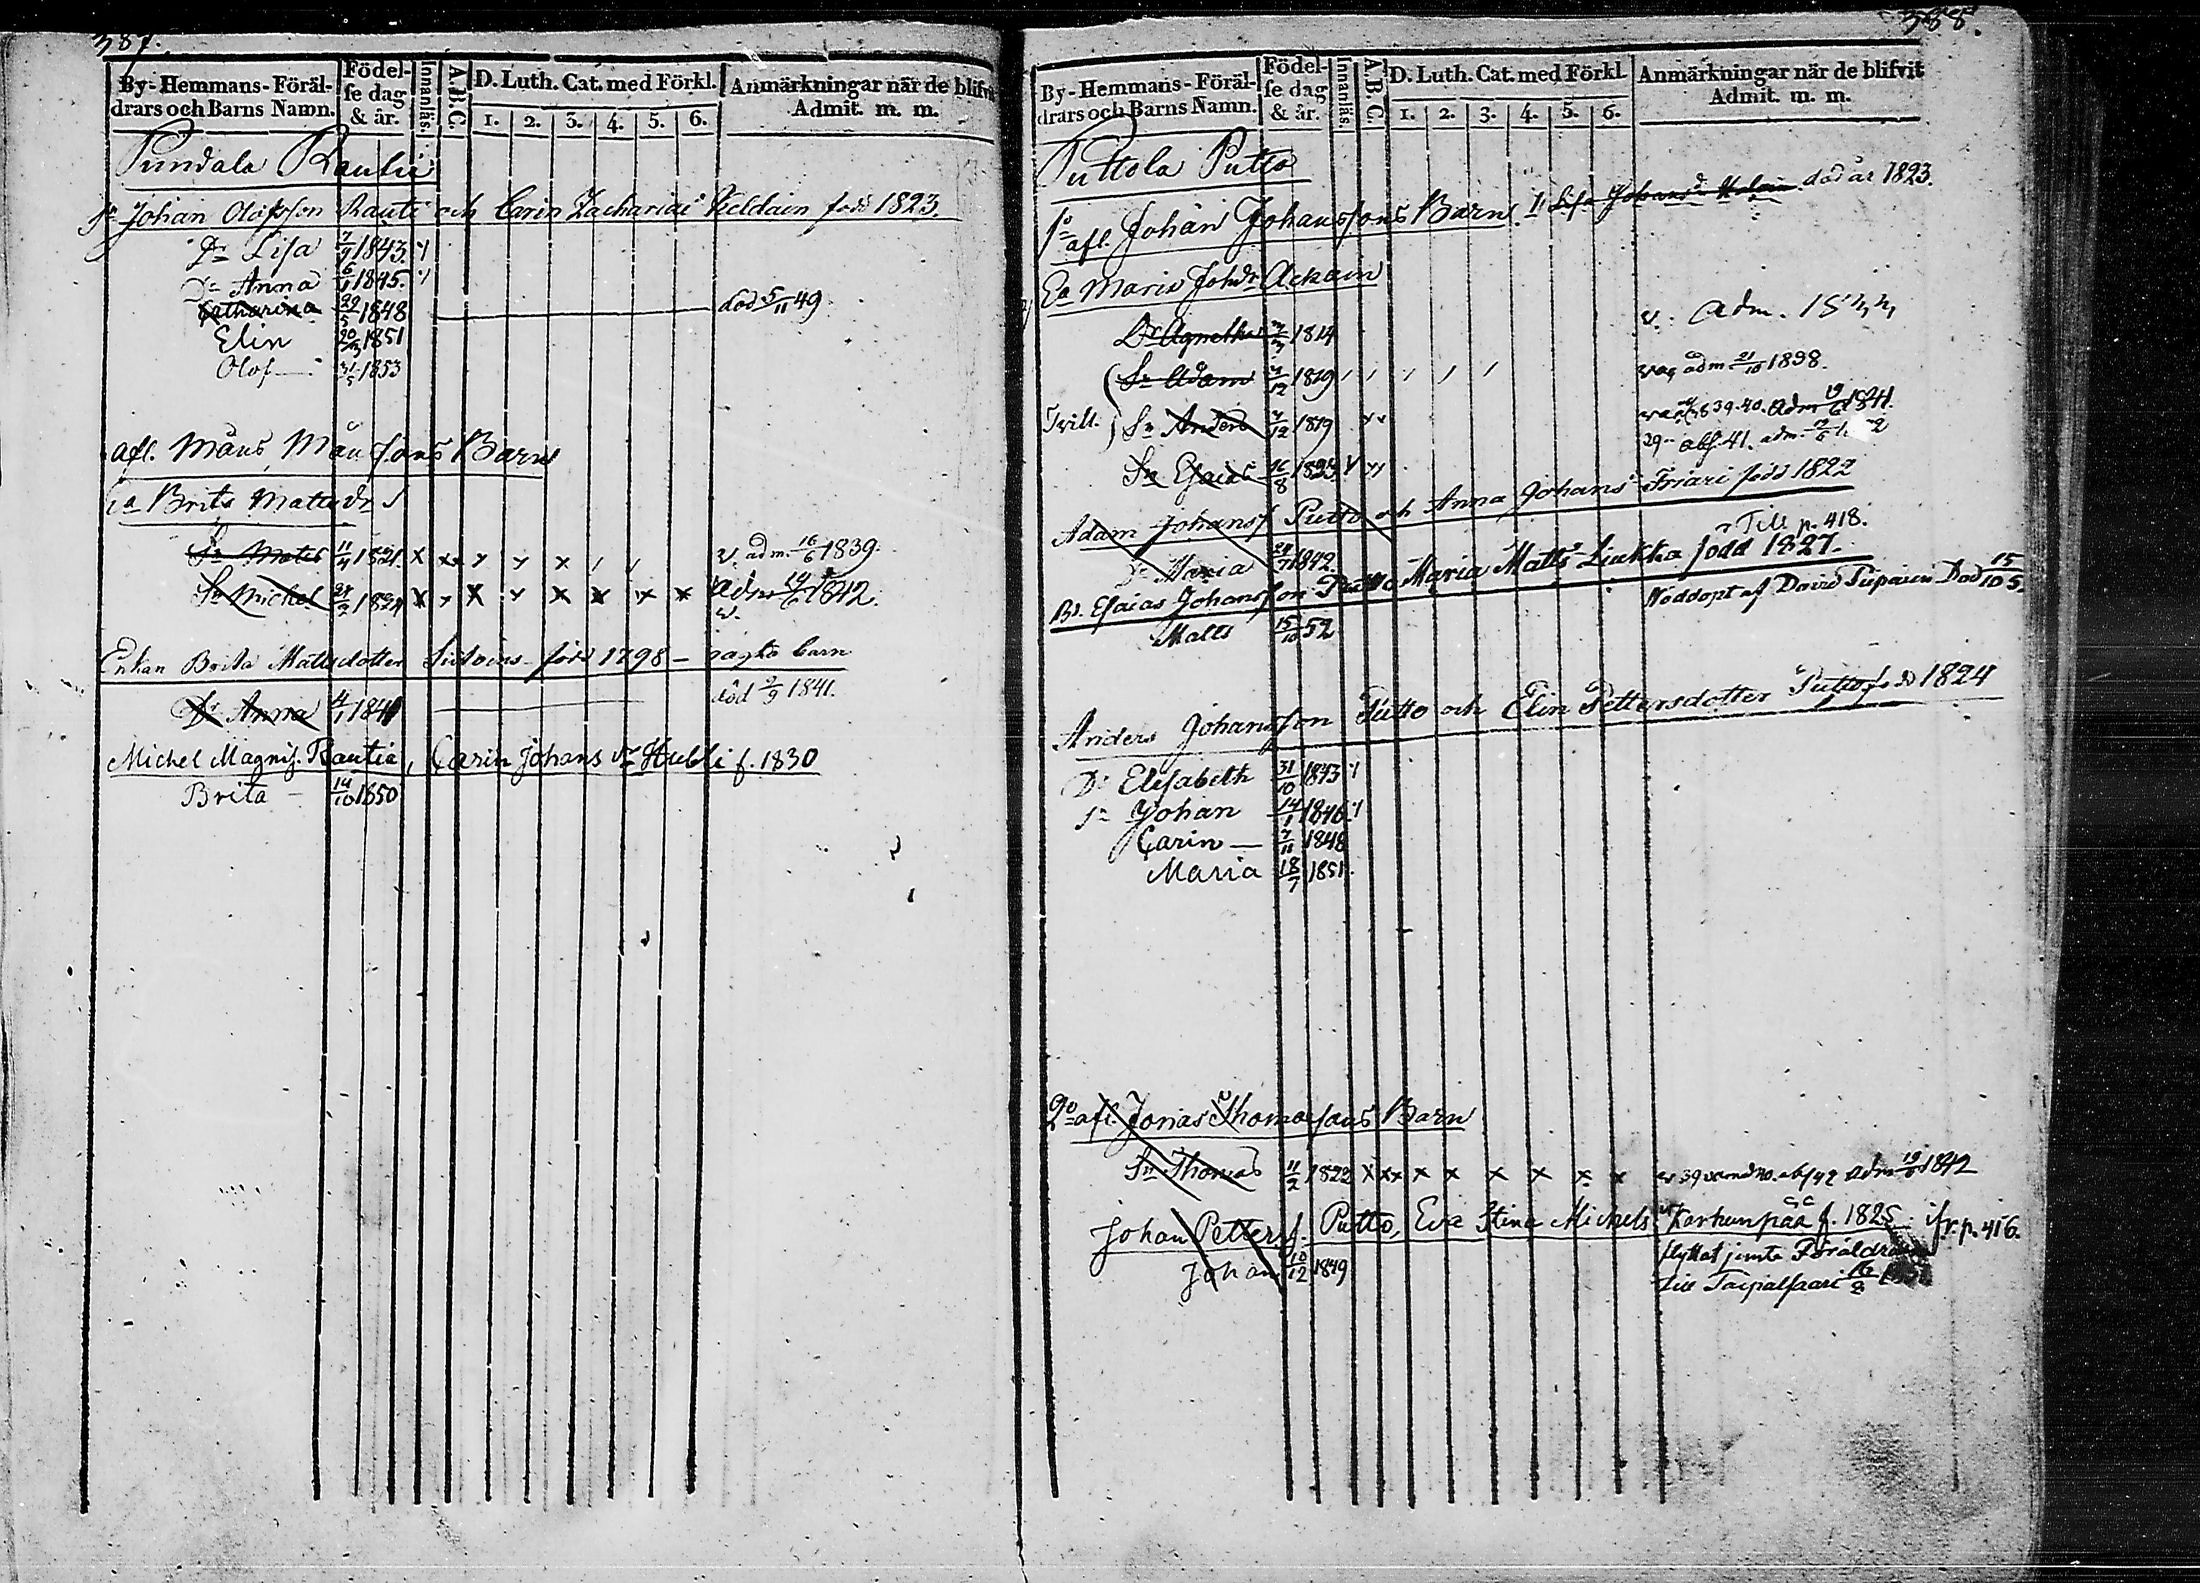 387.
By-Hemmans-Föräl-
drars och Barns Namn.
Födel-
se dag
& år.
Innanläs.
A.B.C.
D. Luth. Cat. med Förkl.
1. 2. 3. 4. 5. 6.
Anmärkningar när de blifvit
Admit. m. m.
Pundala Rautia
Johan Olofsson Rauti och Carin Zachariaed. född 1823.
Dr Lisa 7/9 1843.
Dr Anna 6/1 1845.
Catharina 29/5 1848 död 5/11 49
Elin 20/13 1851
Olof 31/5 1853
afl. Måns Månssons Barn
Ea Brita Mattsdr
Sn Mats 11/4 1821. x xx y y x v. adm. 16/6 1839.
Sn Michel 29/9 1824 x y x y x x x x adm 19/6 1842.
v.
Enkan Brita Mattsdotter född 1798 - oägta barn
Dr Anna 4/1 1841 död 2/9 1841.
Michel Magnis. Rautia, Carin Johans dr Hubli f. 1830
Brita 14/10 1850
388.
By-Hemmans-Föräl-
drars och Barns Namn.
Födel-
se dag
& år.
Innanläs.
A.B.C.
D. Luth. Cat. med Förkl
1. 2. 3. 4. 5. 6.
Anmärkningar när de blifvit
Admit. m. m.
Puttola Putto
1o afl. Johan Johanssons Barn. Lisa Johansd. död år 1823.
Ea Maria Johdr Ackain
Dr Agnetha 7/3 1814 v. adm.
Sn Adam 7/12 1819 adm 21/10 1838.
Tvill. Sn Anders 7/12 1819 1839-40. adm 19/6 1841.
abs. 41. adm.
Sn Esaias 16/8 1823
Adam Johanss. Putto och Anna Johans dr Friari född 1822
Till p. 418.
Dr Maria 24/7 1842.
Bd. Esaias Johansson Putto Maria Matts dr Liukka född 1827.
Matts 15/10 52 Nöddöpt af David Död 15/10 5
Anders Johansson Putto och Elin Pettersdotter Putto född 1824
Dr Elisabeth 31/10 1843
Sn Johan 14/1 1846
Carin 7/11 1848
Maria 18/7 1851.
2o afl. Jonas Thomassons Barn
Sn Thomas 11/2 1822 x xx x x x x x x abs 42 adm 19/6 1842
Johan Petters. Putto, Eva Stina Michels dr Karhunpää f. 1825. ifr. p. 416.
Johan 10/12 1849 flyttat jemte Föräldrarne
till Taipalsaari 16/2